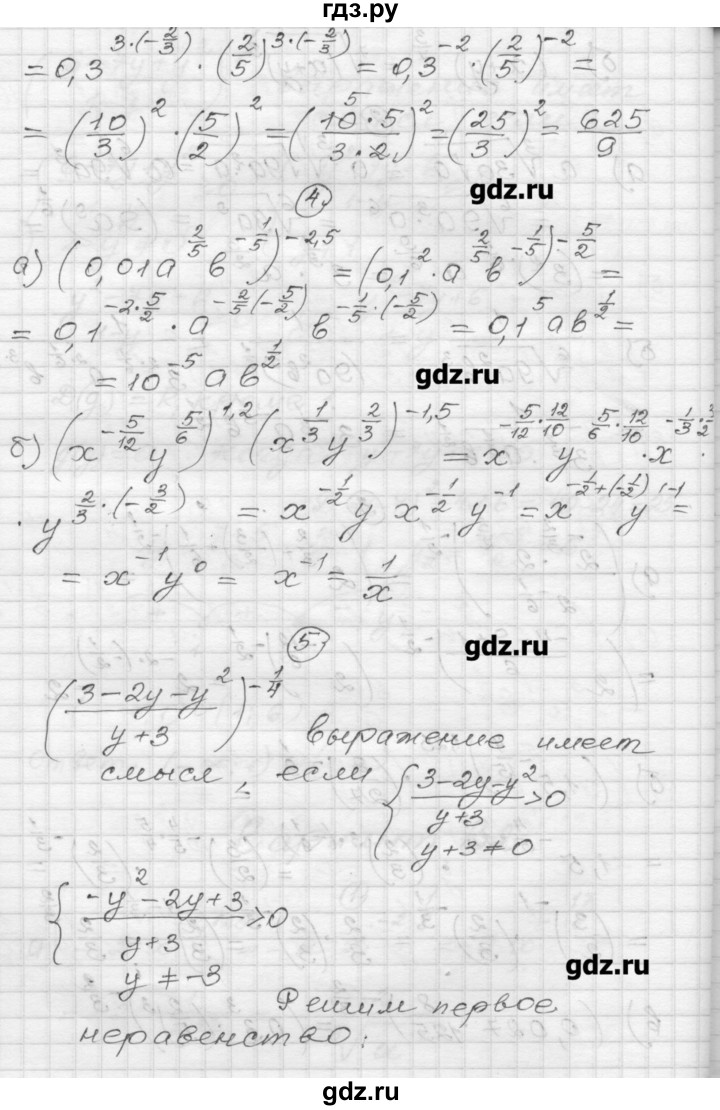 гдз.ру
= 0,3^{3·(-2/3)} · (2/5)^{3·(-2/3)} = 0,3^{-2} · (2/5)^{-2} =
= (10/3)^2 · (5/2)^2 = (10^5·5/3·2)^2 = (25/3)^2 = 625/9
4. gdz.ru
а) (0,01a^{2/5} b^{-1/5})^{-2,5} = (0,1^2 · a^{2/5} b^{-1/5})^{-5/2} =
= 0,1^{-2·5/2} · a^{-2/5(-5/2)} b^{-1/5·(-5/2)} = 0,1^5 ab^{1/2} =
= 10^{-5} ab^{1/2} gdz.ru
б) (x^{-5/12} y^{5/6})^{1,2} (x^{1/3} y^{2/3})^{-1,5} = x^{-5/12·12/10} y^{5/6·12/10} · x^{-1/3·3/2} ·
· y^{2/3·(-3/2)} = x^{-1/2} y x^{-1/2} y^{-1} = x^{-1/2+(-1/2)} y^{1-1} =
= x^{-1} y^0 = x^{-1} = 1/x
5. gdz.ru
(3-2y-y^2/y+3)^{-1/4} выражение имеет
смысл, если { 3-2y-y^2/y+3 > 0
y+3 ≠ 0
{ -y^2-2y+3/y+3 > 0
y ≠ -3
gdz.ru
Решим первое
неравенство:
gdz.ru